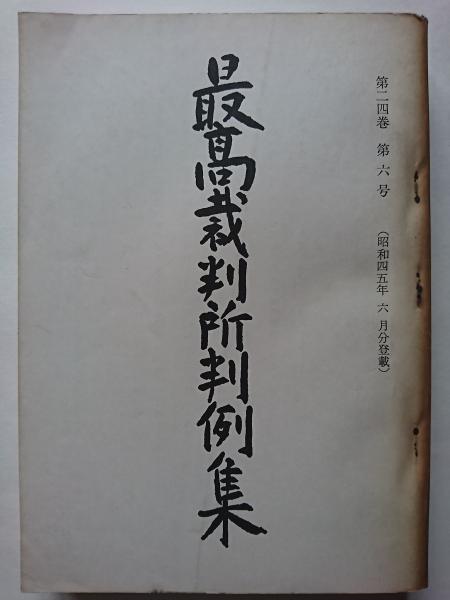 第二四巻 第六号
(昭和四五年 六 月分登載)
最高裁判所判例集